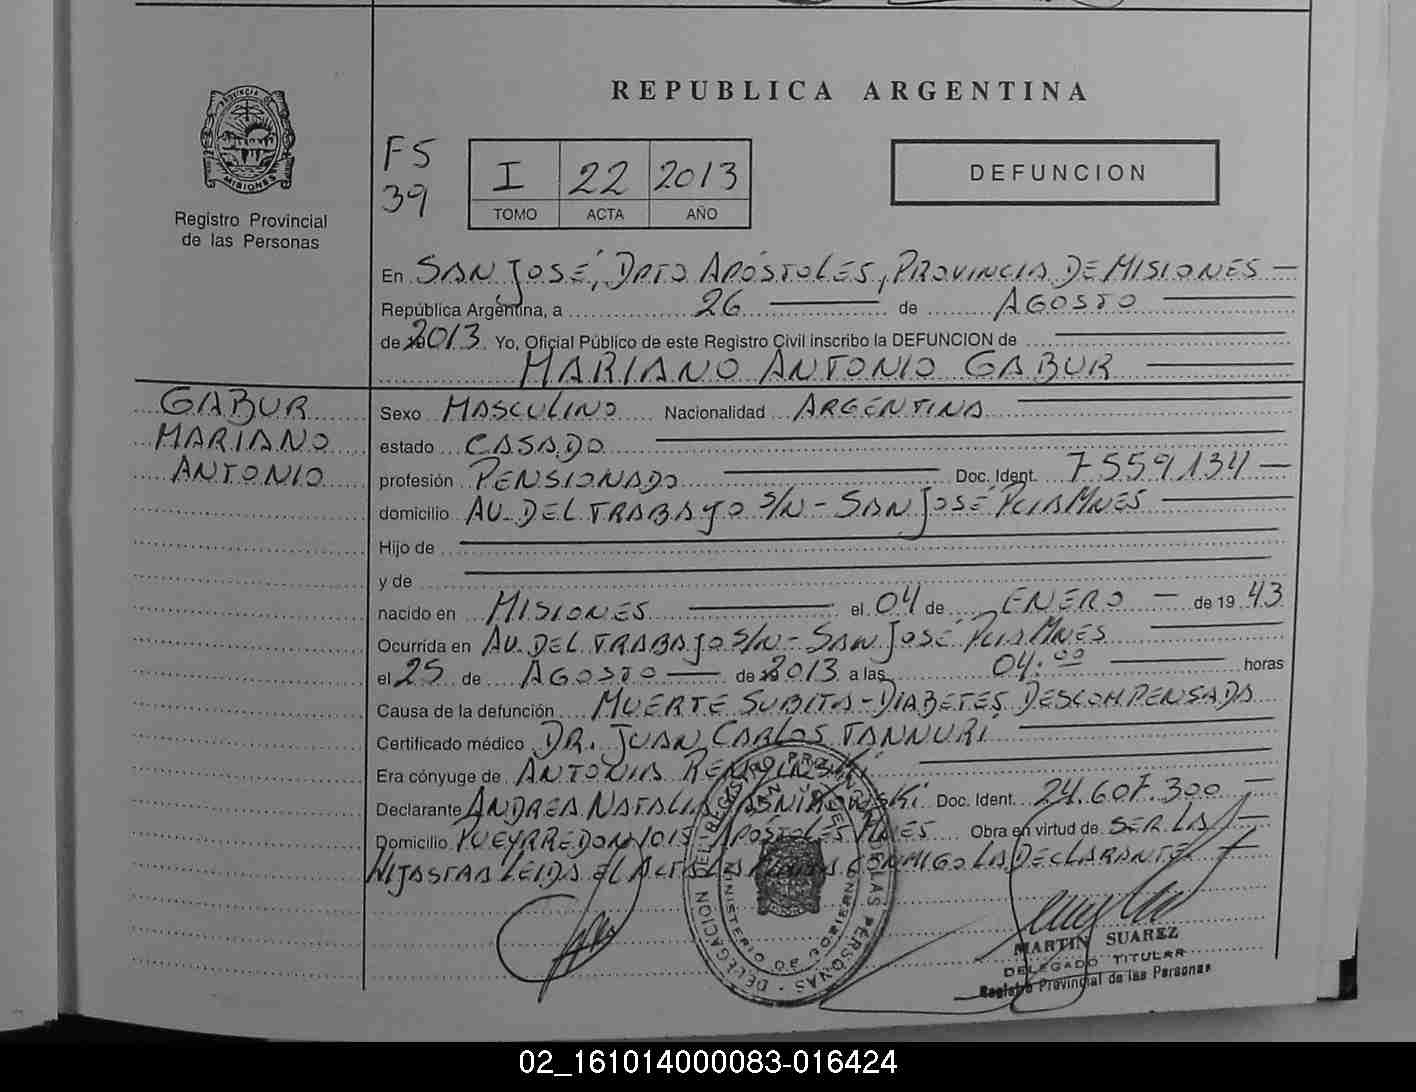 REPUBLICA ARGENTINA
PROVINCIA DE MISIONES
Registro Provincial
de las Personas
F5
39
I 22 2013
TOMO ACTA AÑO
DEFUNCION
En SAN JOSÉ, DPTO APÓSTOLES, PROVINCIA DE MISIONES —
República Argentina, a 26 — de AGOSTO —
de 2013. Yo, Oficial Público de este Registro Civil inscribo la DEFUNCION de —
MARIANO ANTONIO GABUR —
GABUR
MARIANO
ANTONIO
Sexo MASCULINO Nacionalidad ARGENTINA —
estado CASADO —
profesión PENSIONADO — Doc. Ident. 7559134 —
domicilio AV. DEL TRABAJO S/N - SAN JOSÉ PCIA MNES —
Hijo de —
y de —
nacido en MISIONES — el 04 de ENERO — de 19 43
Ocurrida en AV. DEL TRABAJO S/N - SAN JOSÉ PCIA MNES —
el 25 de AGOSTO — de 2013 a las 04:00 — horas
Causa de la defunción MUERTE SUBITA - DIABETES DESCOMPENSADA
Certificado médico DR. JUAN CARLOS TANNURI —
Era cónyuge de ANTONIA —
Declarante ANDREA NATALIA Doc. Ident. 24.607.300 —
Domicilio PUEYRREDON 1015 APÓSTOLES MNES Obra en virtud de SER LA —
HIJASTRA LEIDA EL ACTA LA CONMIGO LA DECLARANTE —
DELEGACION DEL REGISTRO PROVINCIAL DE LAS PERSONAS
SAN JOSE
MINISTERIO DE GOBIERNO
MARTIN SUAREZ
DELEGADO TITULAR
Registro Provincial de las Personas
02_161014000083-016424